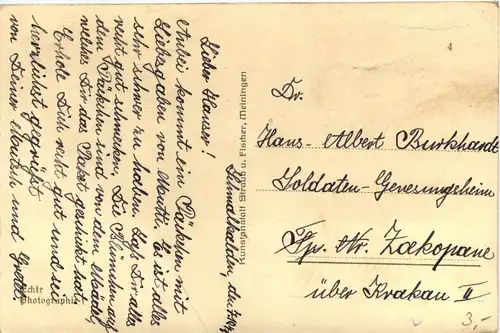 Schmalkalden, den
Lieber Hanser!
Anbei kommt ein Päckchen mit
Liebesgaben von Mutti. Es ist alles
sehr schwer zu haben. Laß Dir alles
recht gut schmecken. Die Blümchen auf
dem Päckchen sind von dem Mädel,
welches Dir das Paket geschickt hat.
Erhole Dich recht gut und sei
herzlichst gegrüßt
von Deiner Mutsch und Gretl.
Echte
Photographie
Kunstanstalt Straub u. Fischer, Meiningen
4
Dr.
Hans-Albert Burkhardt
Soldaten-Genesungsheim
Fp. Nr. Zakopane
über Krakau II
3,-